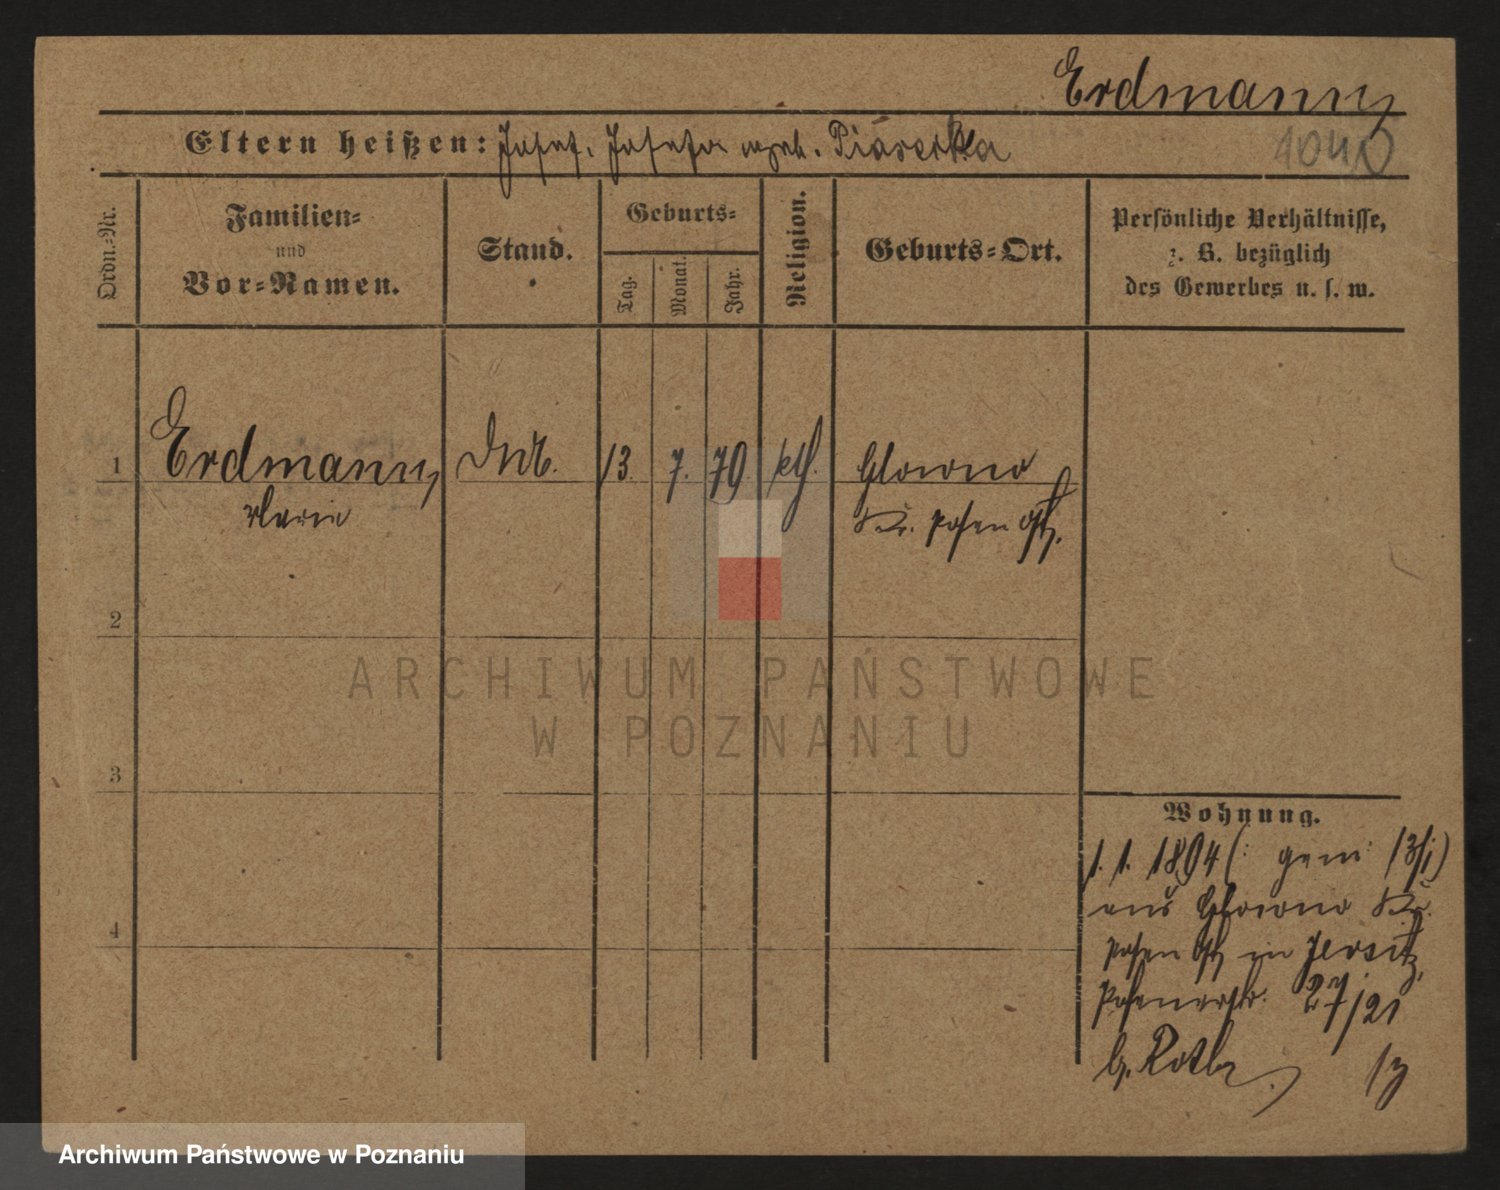 Erdmann
Eltern heißen: Josef. Josefa geb. Piasecka
1040
Ordn.-Nr.
Familien-
und
Vor-Namen.
Stand.
Geburts-
Tag.
Monat.
Jahr.
Religion.
Geburts-Ort.
Persönliche Verhältnisse,
z. B. bezüglich
des Gewerbes u. s. w.
1 Erdmann 13. 7. 70 kth. Glowno
Marie Kr. Posen Ost.
2
3
4
Wohnung.
1. 1. 1894 (: gem: 13/1)
aus Glowno Kr.
Posen Ost in Jersitz,
Posenerstr. 27/21
b.
ARCHIWUM PAŃSTWOWE
W POZNANIU
Archiwum Państwowe w Poznaniu